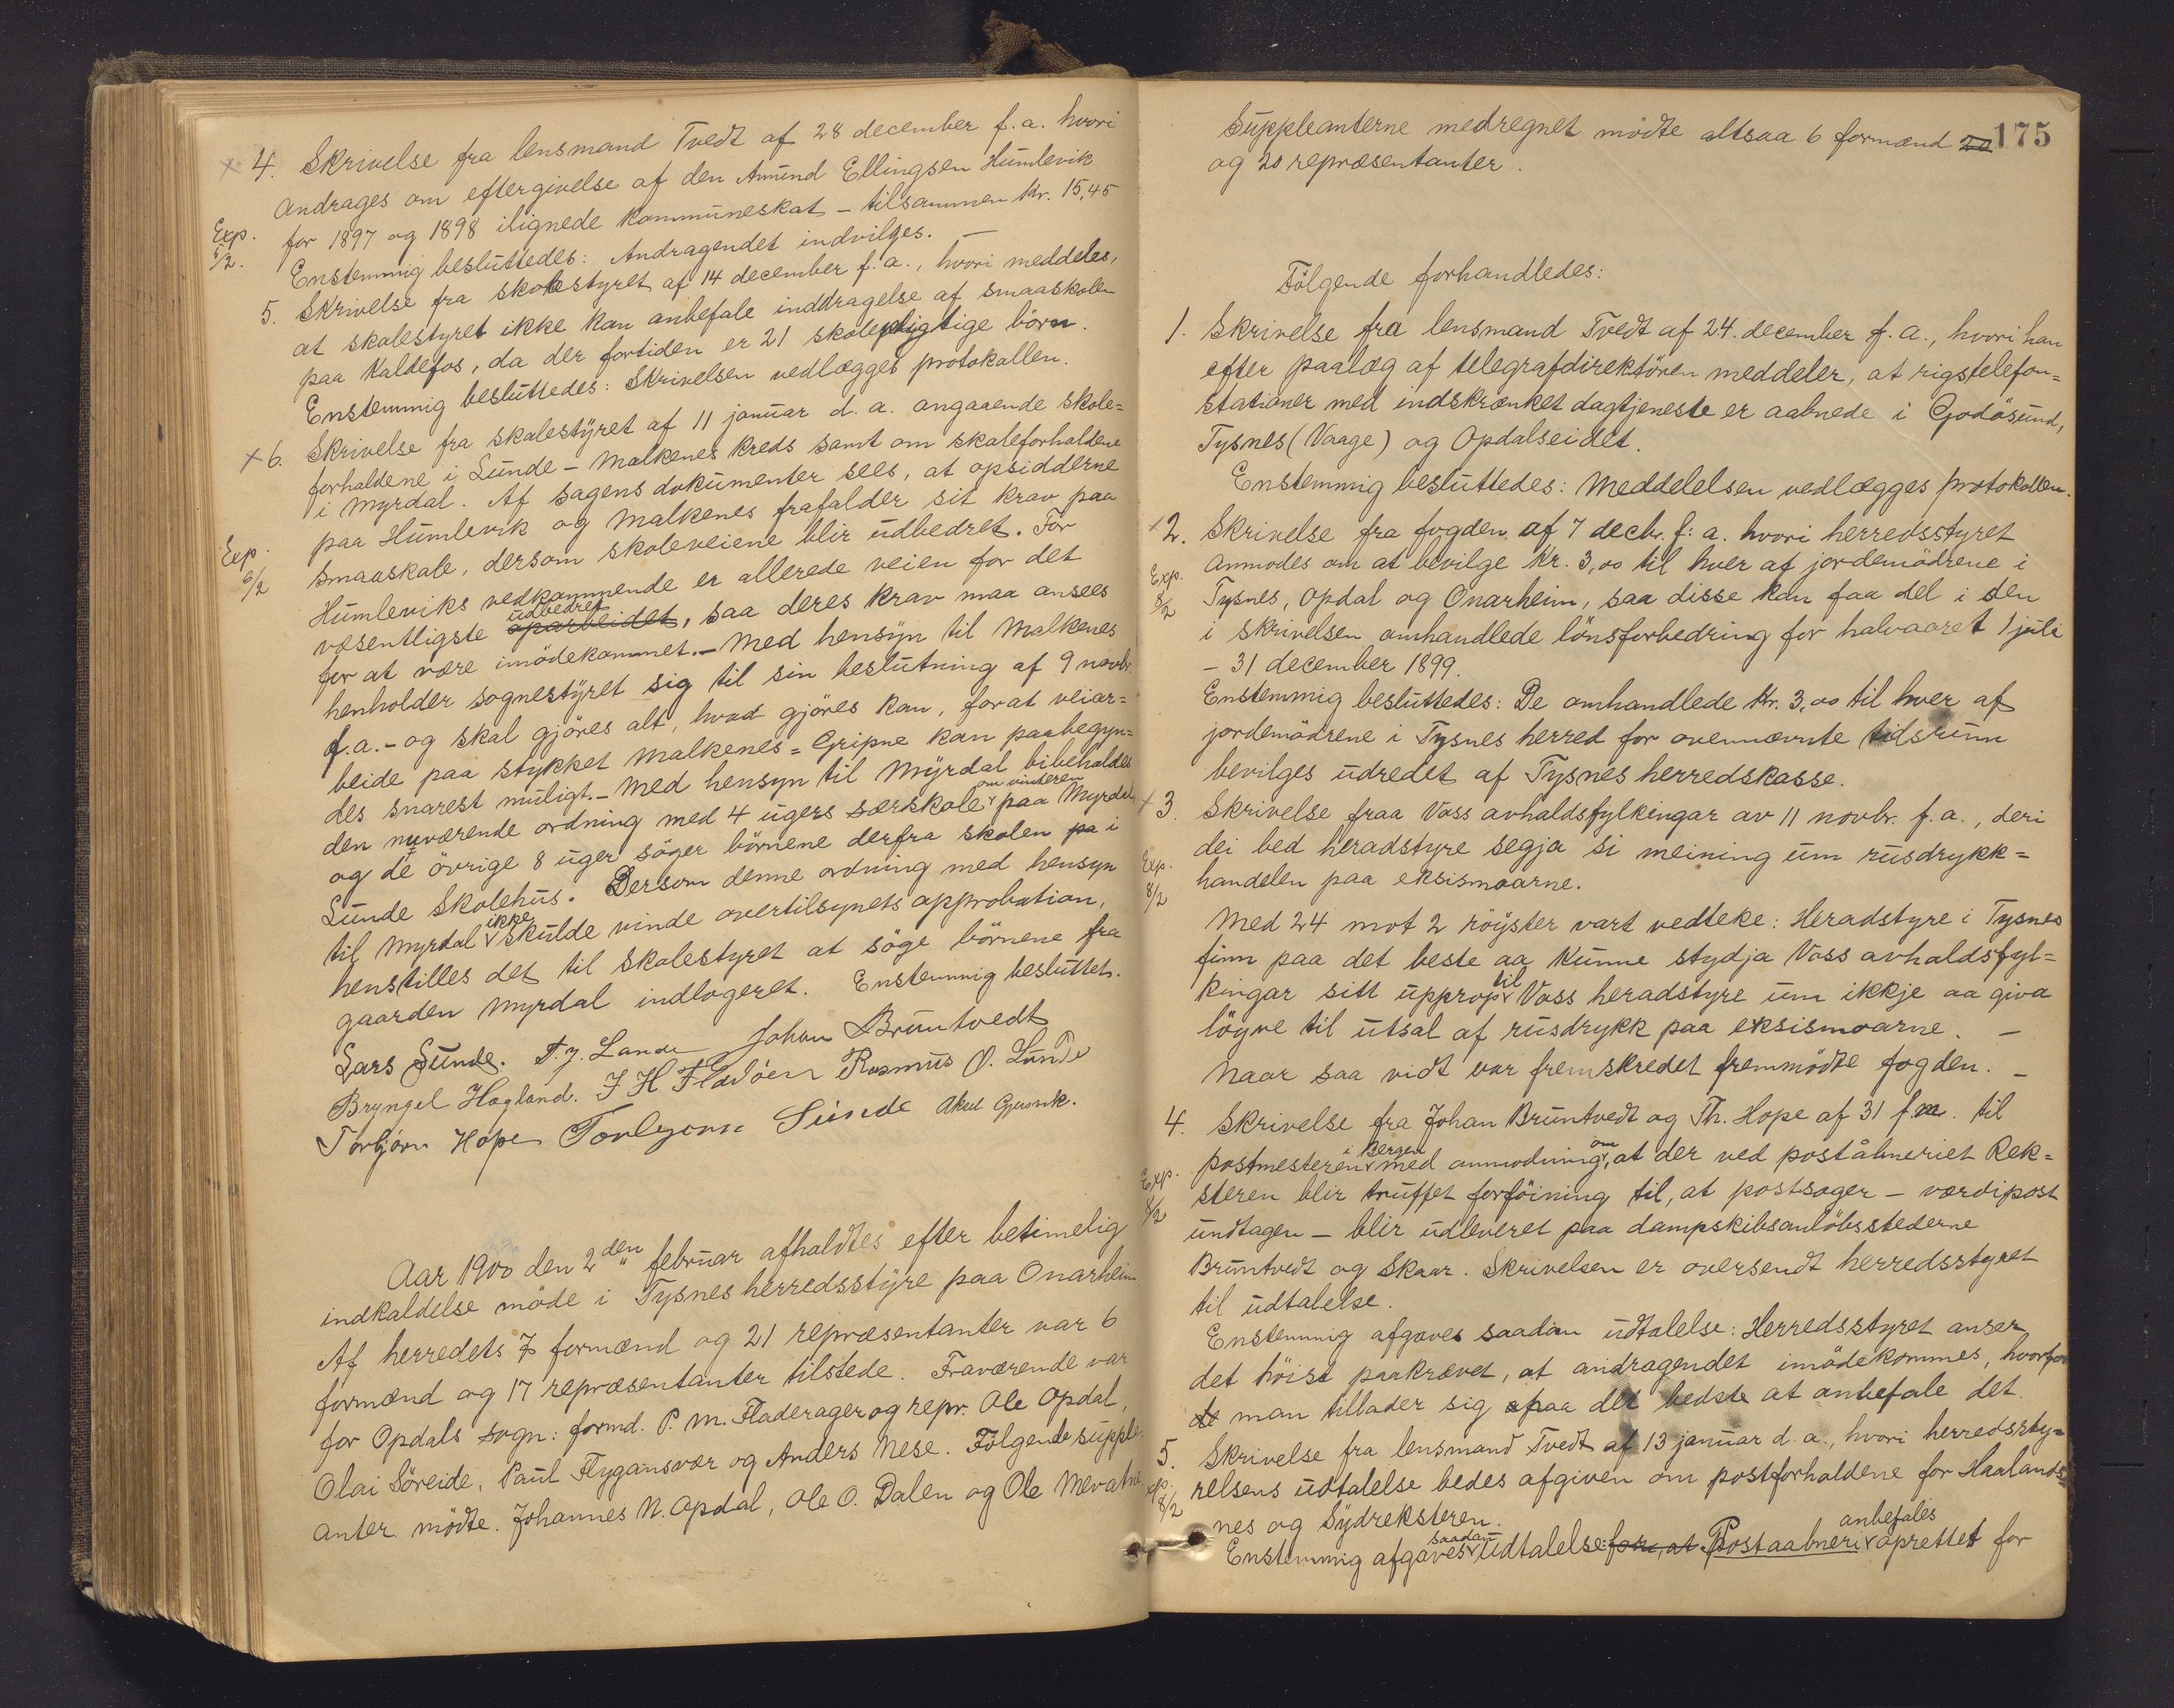 × 4. Skrivelse fra lensmand Tvedt af 28 december f. a. hvori
andrages om eftergivelse af den Amund Ellingsen Humlevik
Exp. 5/2. for 1897 og 1898 ilignede kommuneskat – tilsammen kr. 15,45
Enstemmig besluttedes: Andragendet indvilges. –
5. Skrivelse fra skolestyret af 14 december f. a., hvori meddeles,
at skolestyret ikke kan anbefale inddragelse af smaaskolen
paa Kaldefos, da der fortiden er 21 skolepligtige börn.
Enstemmig besluttedes: Skrivelsen vedlægges protokollen.
× 6. Skrivelse fra skolestyret af 11 januar d. a. angaaende skole=
forholdene i Sunde – Malkenes kreds samt om skoleforholdene
i Myrdal. Af sagens dokumenter sees, at opsidderne
paa Humlevik og Malkenes frafalder sit krav paa
Exp. 6/2 smaaskole, dersom skoleveiene blir udbedret. For
Humleviks vedkommende er allerede veien for det
væsentligste oparbeidet udbedret, saa deres krav maa ansees
for at være imödekommet. – Med hensyn til Malkenes
henholder sognestyret sig til sin beslutning af 9 novbr.
f. a. – og skal gjöres alt, hvad gjöres kan, forat veiar=
beide paa stykket Malkenes = Gripne kan paabegyn=
des snarest muligt. – Med hensyn til Myrdal bibeholdes
den nuværende ordning med 4 ugers særskole om vinteren paa Myrdal,
og de övrige 8 uger söger börnene derfra skolen pa i
Sunde Skolehus. Dersom denne ordning med hensyn
til Myrdal ikke skulde vinde overtilsynets approbation,
henstilles det til skolestyret at söge börnene fra
gaarden Myrdal indlogeret. Enstemmig besluttet.
Lars Sunde. T. J. Lande Johan Bruntvedt
Bryngel Hagland. J H Fladöen Rasmus O. Lunde
Torbjörn Hope Torbjörn Sunde Aksel Gjersvik.
Aar 1900 den 2den februar afholdtes efter betimelig
indkaldelse möde i Tysnes herredsstyre paa Onarheim
Af herredets 7 formænd og 21 repræsentanter var 6
formænd og 17 repræsentanter tilstede. Fraværende var
for Opdals sogn: formd. P. M. Fladerager og repr. Ole Opdal,
Olai Söreide, Paul Flygansvær og Anders Nese. Fölgende supple
anter mödte. Johannes N. Opdal, Ole O. Dalen og Ole Mevatne
175
Suppleanterne medregnet mödte altsaa 6 formænd 20
og 20 repræsentanter.
Fölgende forhandledes:
1. Skrivelse fra lensmand Tvedt af 24. december f. a., hvori han
efter paalæg af telegrafdirektören meddeler, at rigstelefon=
stationer med indskrænket dagtjeneste er aabnede i Godösund,
Tysnes (Vaage) og Opdalseidet.
Enstemmig besluttedes: Meddelelsen vedlægges protokollen.
× 2. Skrivelse fra fogden af 7 decbr. f. a. hvori herredsstyret
Exp. 8/2 anmodes om at bevilge kr. 3,00 til hver af jordemödrene i
Tysnes, Opdal og Onarheim, saa disse kan faa del i den
i skrivelsen omhandlede lönsforbedring for halvaaret 1 juli
– 31 december 1899.
Enstemmig besluttedes: De omhandlede kr. 3,00 til hver af
jordemödrene i Tysnes herred for ovennævnte tidsrum
bevilges udredet af Tysnes herredskasse.
× 3. Skrivelse fraa Voss avhaldsfylkingar av 11 novbr. f. a., deri
Exp. 8/2 dei bed heradstyre segja si meining um rusdrykk=
handelen paa eksismoarne.
Med 24 mot 2 röyster vart vedteke: Heradstyre i Tysnes
finn paa det beste aa kunne stydja Voss avhaldsfyl=
kingar sitt upprop til Voss heradstyre um ikkje aa giva
löyve til utsal af rusdrykk paa eksismoarne. –
Naar saa vidt var fremskredet fremmödte fogden. –
4. Skrivelse fra Johan Bruntvedt og Th. Hope af 31 f.m. til
Exp. 8/2 postmesteren i Bergen med anmodning om, at der ved poståbneriet Rek=
steren blir truffet forföining til, at postsager – værdipost
undtagen – blir udleveret paa dampskibsanlöbsstederne
Bruntvedt og Skaar. Skrivelsen er oversendt herredsstyret
til udtalelse.
Enstemmig afgaves saadan udtalelse: Herredsstyret anser
det höist paakrævet, at andragendet imödekommes, hvorfor
de man tillader sig paa det bedste at anbefale det.
5. Skrivelse fra lensmand Tvedt af 13 januar d. a., hvori herredssty=
Exp. 8/2 relsens udtalelse bedes afgiven om postforholdene for Haalands=
nes og Sydreksteren.
Enstemmig afgaves saadan udtalelse: for, at Postaabneri anbefales oprettet for